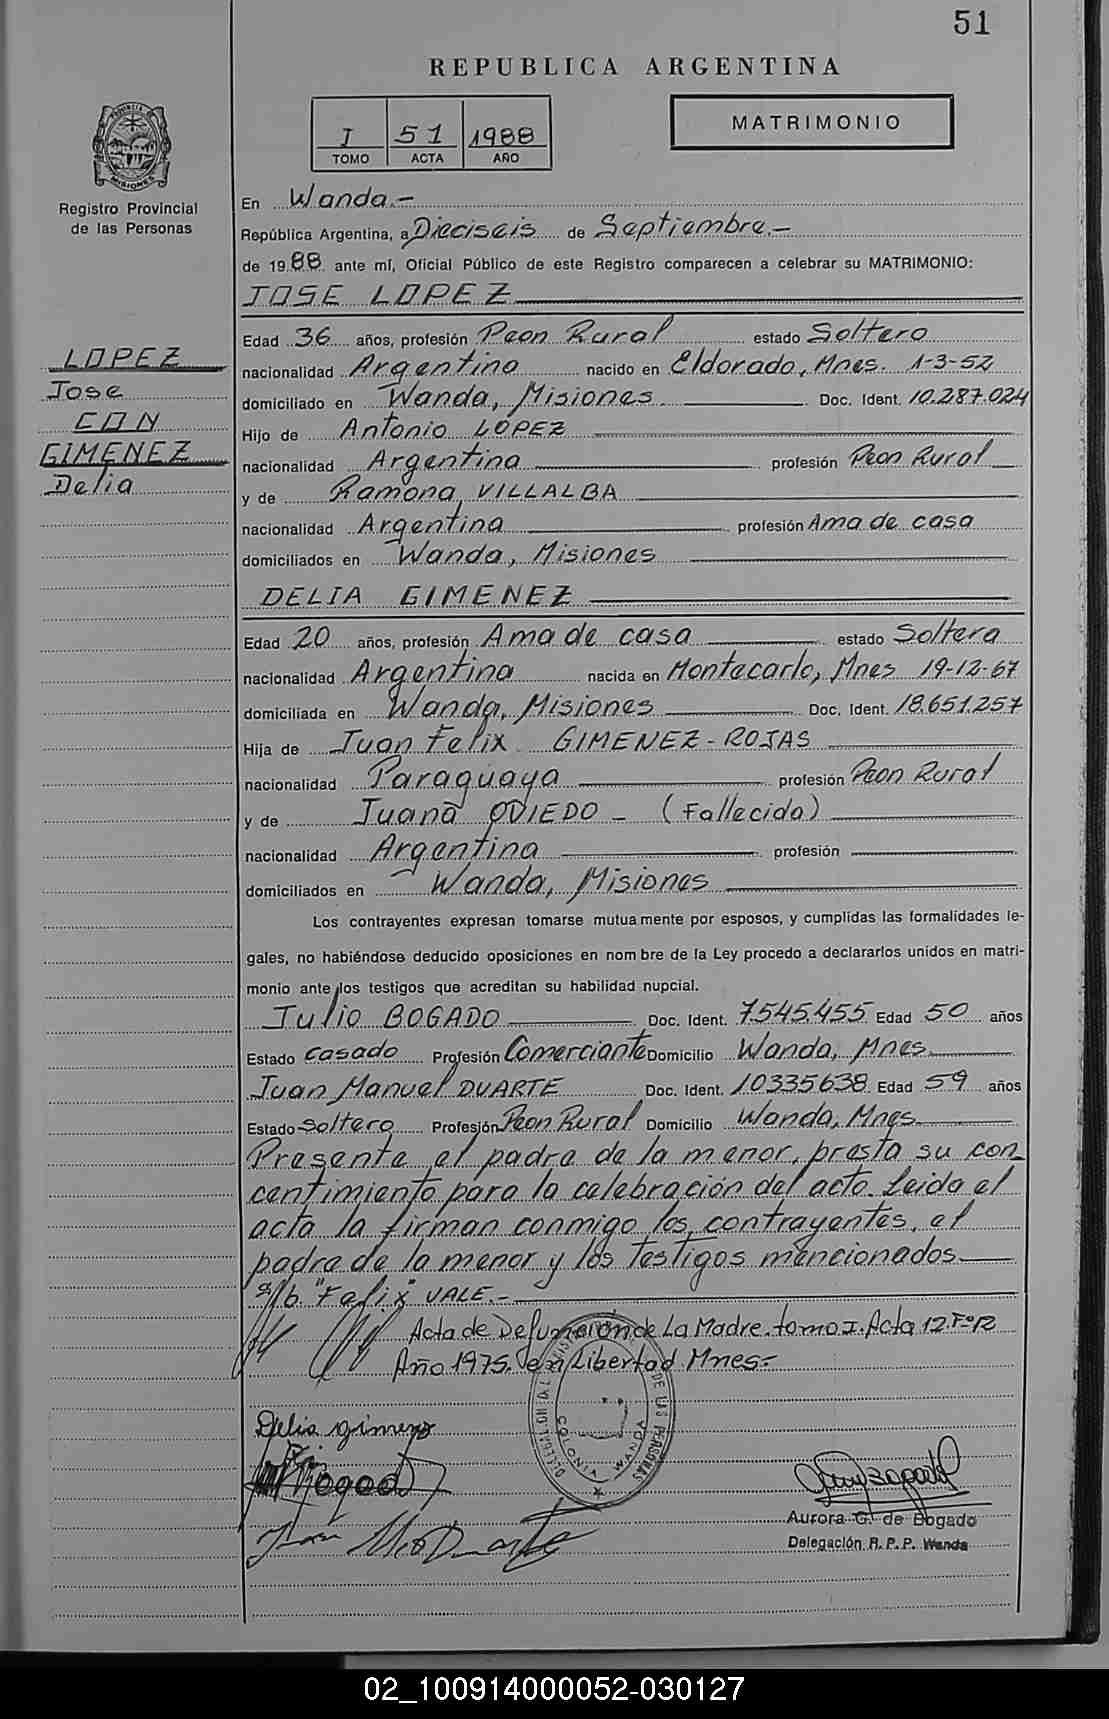 51
REPUBLICA ARGENTINA
I 51 1988
TOMO ACTA AÑO
MATRIMONIO
PROVINCIA DE MISIONES
Registro Provincial
de las Personas
LOPEZ
Jose
CON
GIMENEZ
Delia
En Wanda.-
República Argentina, a Dieciseis de Septiembre.-
de 1988 ante mí, Oficial Público de este Registro comparecen a celebrar su MATRIMONIO:
JOSE LOPEZ
Edad 36 años, profesión Peon Rural estado Soltero
nacionalidad Argentino nacido en Eldorado, Mnes. 1-3-52
domiciliado en Wanda, Misiones Doc. Ident. 10.287.024
Hijo de Antonio LOPEZ
nacionalidad Argentina profesión Peon Rural
y de Ramona VILLALBA
nacionalidad Argentina profesión Ama de casa
domiciliados en Wanda, Misiones
DELIA GIMENEZ
Edad 20 años, profesión Ama de casa estado Soltera
nacionalidad Argentina nacida en Montecarlo, Mnes 19-12-67
domiciliada en Wanda, Misiones Doc. Ident. 18.651.257
Hija de Juan Felix GIMENEZ-ROJAS
nacionalidad Paraguaya profesión Peon Rural
y de Juana OVIEDO - (Fallecida)
nacionalidad Argentina profesión
domiciliados en Wanda, Misiones
Los contrayentes expresan tomarse mutuamente por esposos, y cumplidas las formalidades le-
gales, no habiéndose deducido oposiciones en nombre de la Ley procedo a declararlos unidos en matri-
monio ante los testigos que acreditan su habilidad nupcial.
Julio BOGADO Doc. Ident. 7.545.455 Edad 50 años
Estado Casado Profesión Comerciante Domicilio Wanda, Mnes.
Juan Manuel DUARTE Doc. Ident. 10335638 Edad 59 años
Estado Soltero Profesión Peon Rural Domicilio Wanda, Mnes.
Presente el padre de la menor, presta su con
centimiento para la celebración del acto. Leido el
acta la firman conmigo los contrayentes, el
padre de la menor y los testigos mencionados.
s/b. "Felix" VALE.-
Acta de Defuncion de La Madre. tomo I. Acta 12 Fº12
Año 1975. en Libertad Mnes-
Delia Gimenez
Bogado
Juan Ml Duarte
DELEGACION DEL REGISTRO DE LAS PERSONAS
COLONIA WANDA
Aurora G. de Bogado
Delegación R. P. P. Wanda
02_100914000052-030127